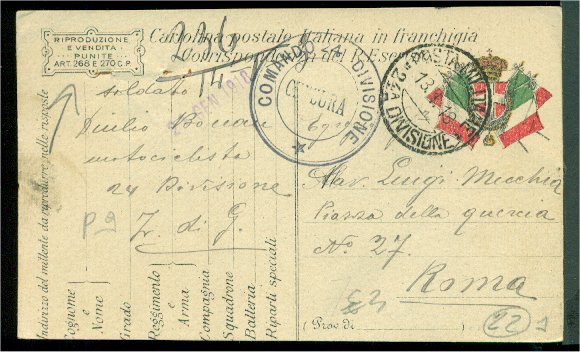 RIPRODUZIONE
E VENDITA
PUNITE
ART. 268 E 270 C.P.
Cartolina postale italiana in franchigia
Corrispondenza del R. Esercito
COMANDO 24 DIVISIONE
CENSURA
POSTA MILITARE
24A DIVISIONE
soldato
Giulio
motociclista
24 Divisione
Z. di G.
Egr
Cav. Luigi Mecchia
Piazza della quercia
No. 27.
Roma
(Prov. di
22
Indirizzo del mittente da riprodurre nelle risposte
Cognome e Nome
Grado
Reggimento e Arma
Compagnia
Squadrone
Batteria
Riparti speciali